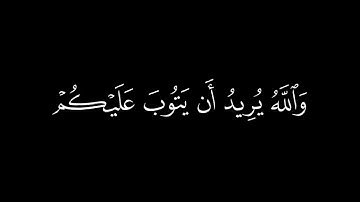 وَٱللَّهُ يُرِيدُ أَن يَتُوبَ عَلَيۡكُمۡ